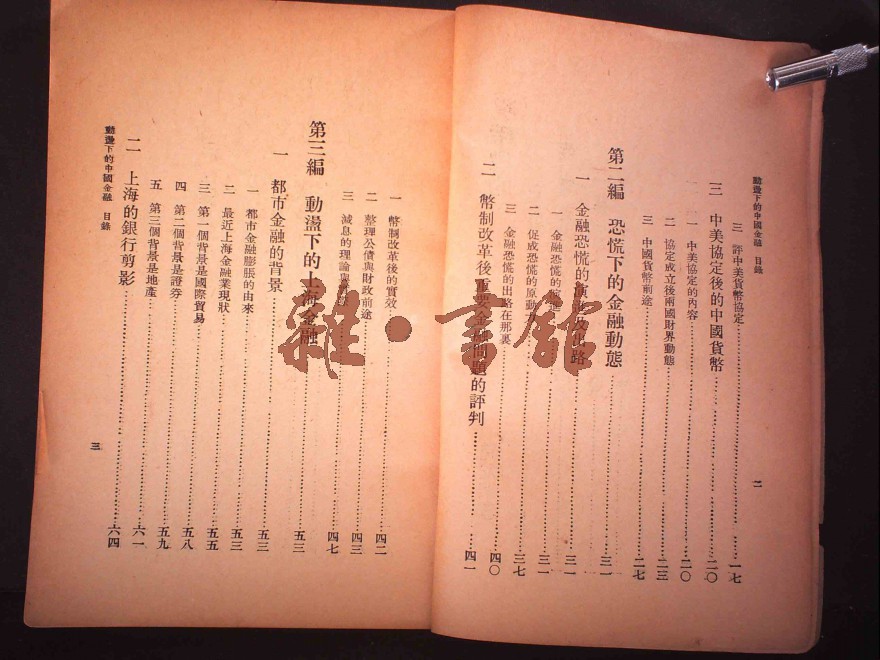 動盪下的中國金融 目錄
二
三 評中美貨幣協定……一七
三 中美協定後的中國貨幣……二〇
一 中美協定的內容……二〇
二 協定成立後兩國財界動態……二三
三 中國貨幣前途……二七
第二編 恐慌下的金融動態……三一
一 金融恐慌的演進及出路……三一
一 金融恐慌的演進……三一
二 促成恐慌的原動力……三一
三 金融恐慌的出路在那裏……三七
二 幣制改革後重要金融問題的評判……四一
一 幣制改革後的實效……四二
二 整理公債與財政前途……四三
三 減息的理論與……四七
第三編 動盪下的上海金融……五三
一 都市金融的背景……五三
一 都市金融膨脹的由來……五三
二 最近上海金融業現狀……五三
三 第一個背景是國際貿易……五五
四 第二個背景是證券……五八
五 第三個背景是地產……五九
二 上海的銀行剪影……六四
動盪下的中國金融 目錄
三
雜·書館